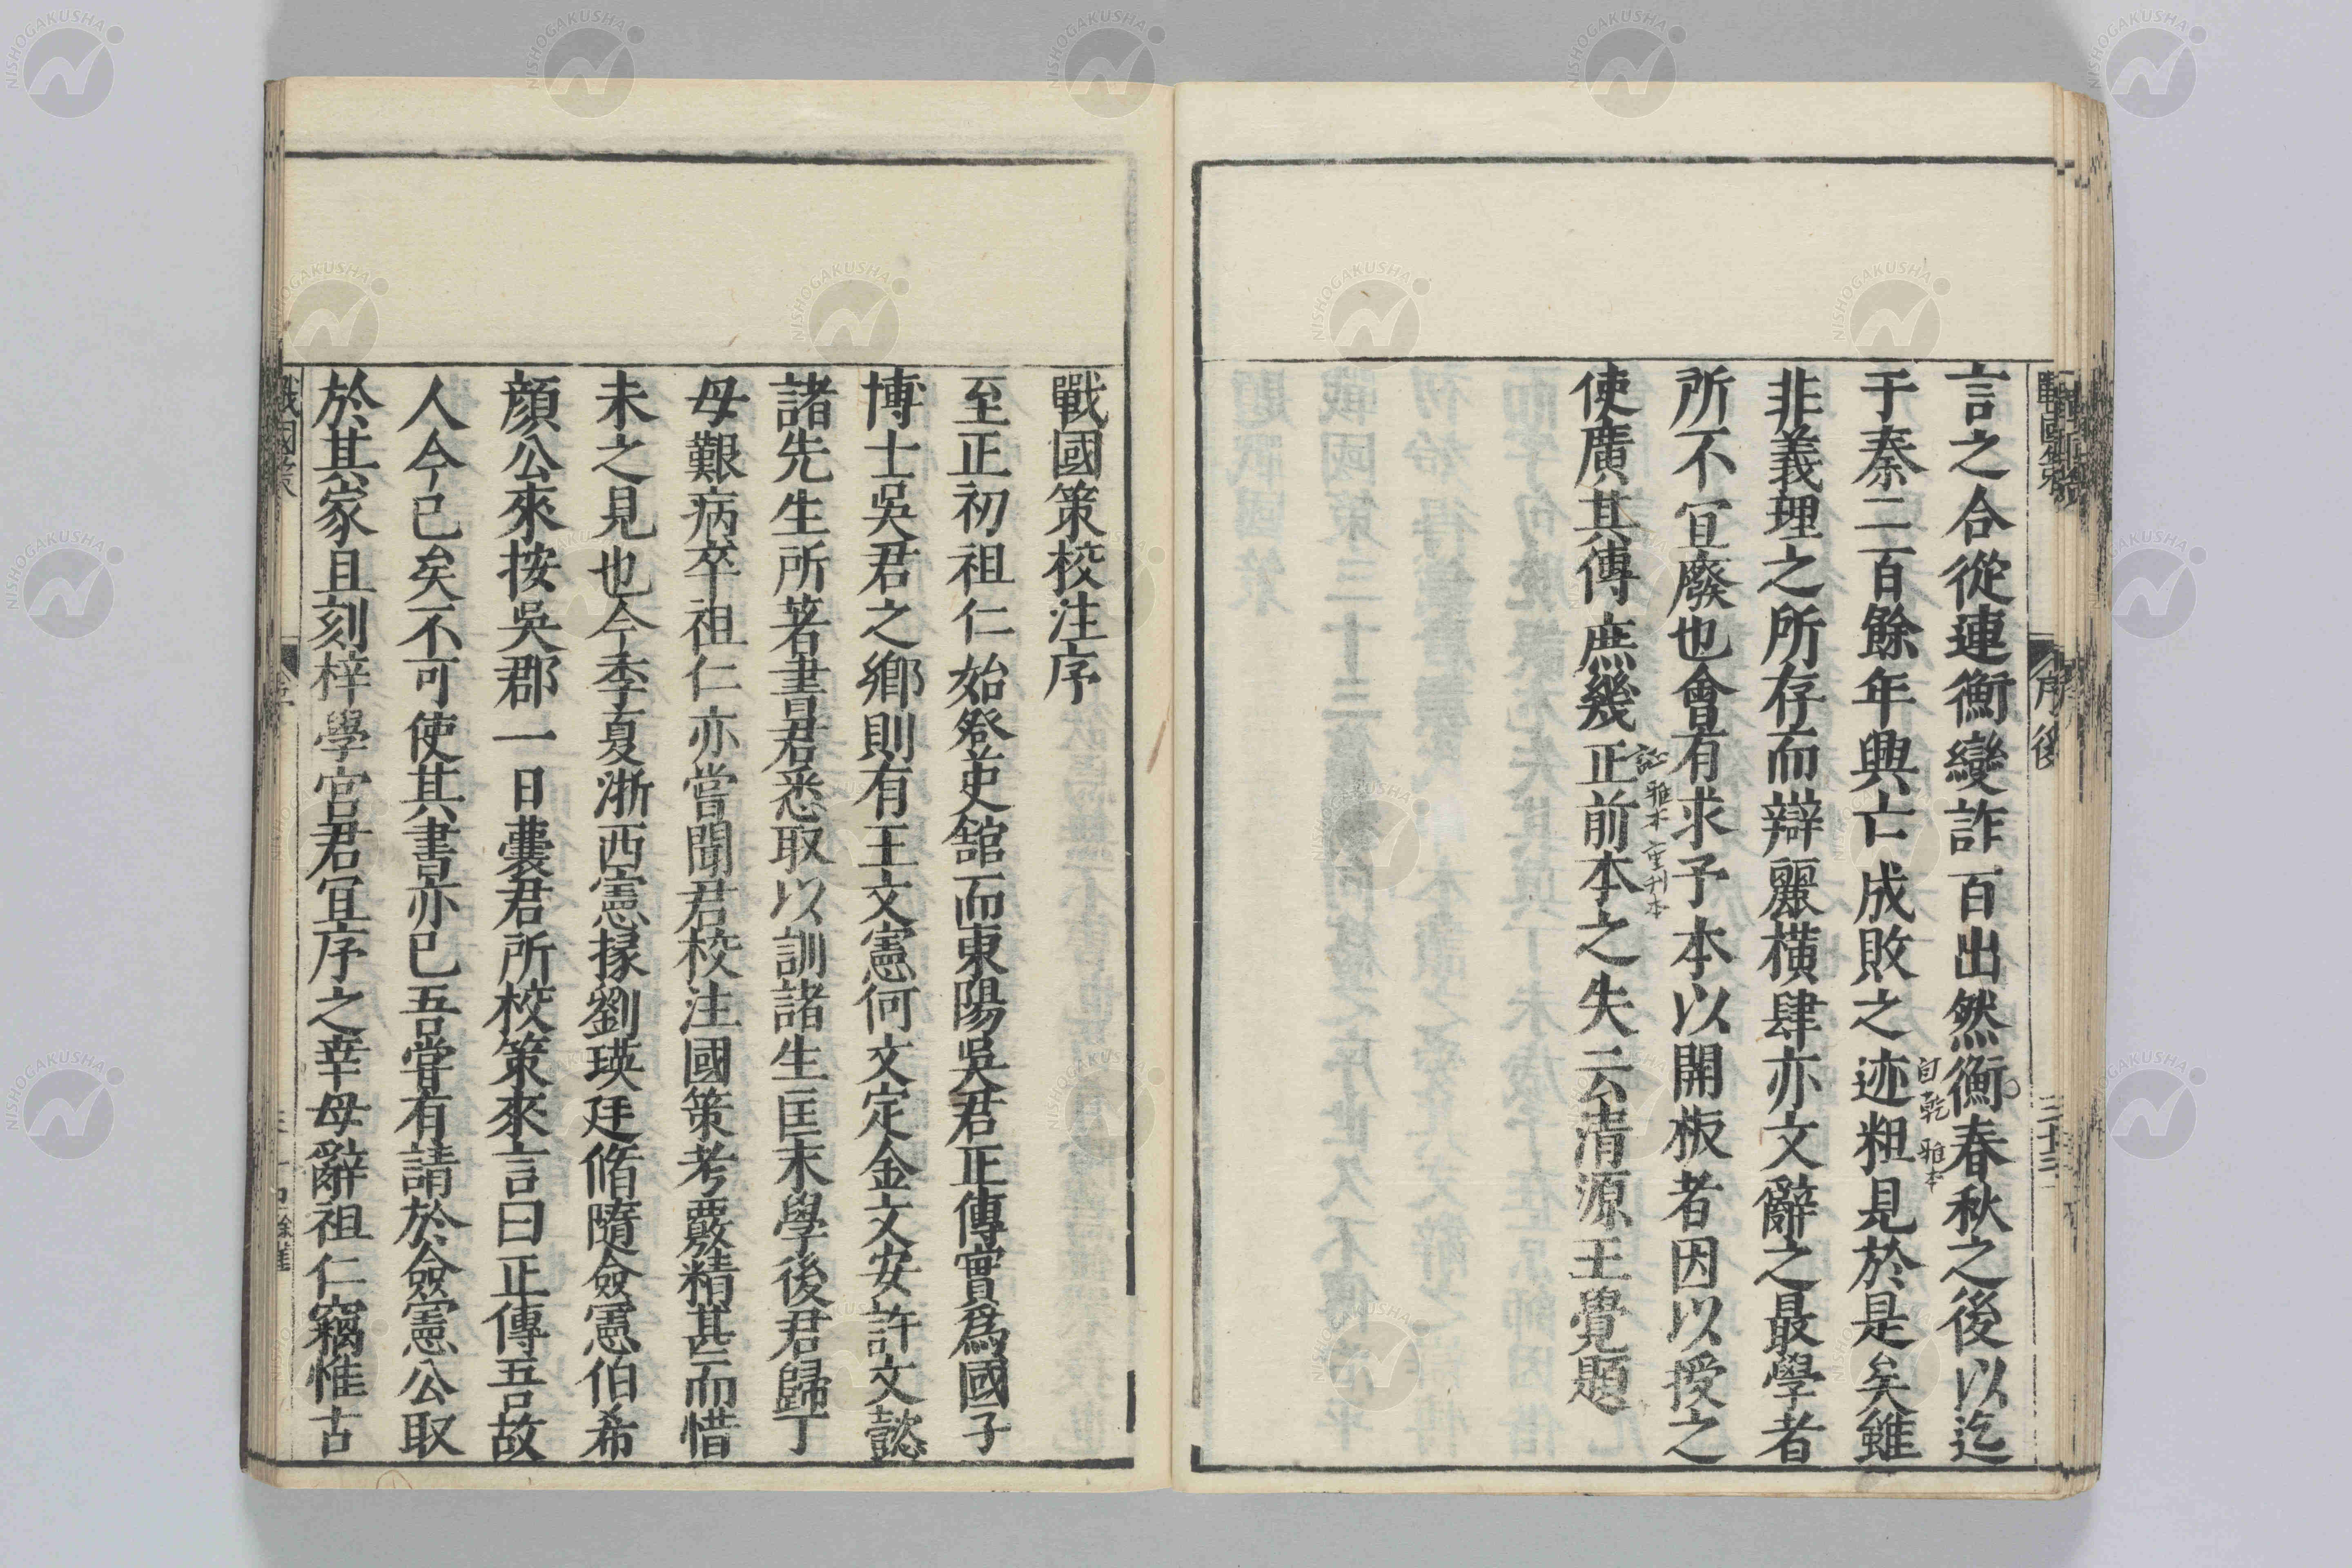 言之合從連衡變詐百出然衡春秋之後以迄
自乾 雅本
于秦二百餘年興亡成敗之迹粗見於是矣雖
非義理之所存而辯麗橫肆亦文辭之最學者
所不冝廢也會有求予本以開板者因以授之
訟 雅本 重刊本
使廣其傳庶幾正前本之失云清源王覺題
戰國策校注序
至正初祖仁始登吏舘而東陽吳君正傳實爲國子
博士吳君之鄉則有王文憲何文定金文安許文懿
諸先生所著書君悉取以訓諸生匡末學後君歸丁
母艱病卒祖仁亦嘗聞君校注國策考覈精甚而惜
未之見也今季夏浙西憲掾劉瑛廷脩隨僉憲伯希
顏公來按吳郡一日囊君所校策來言曰正傳吾故
人今已矣不可使其書亦已吾嘗有請於僉憲公取
於其家且刻梓學官君冝序之幸毋辭祖仁竊惟古
戰國策
序後
三十三
NISHOGAKUSHA